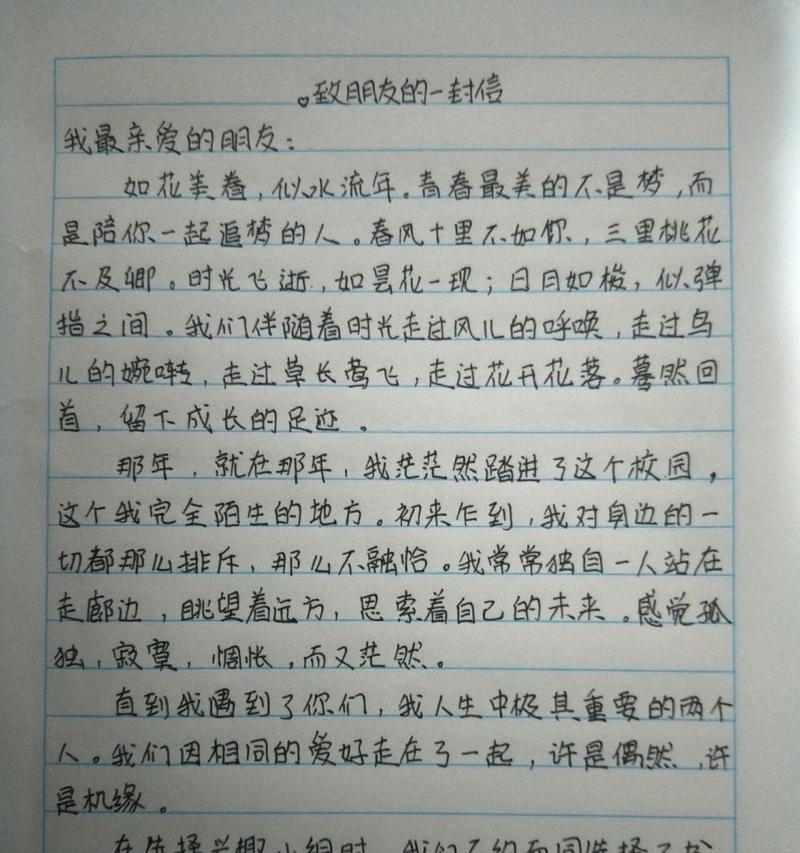 致朋友的一封信
我最亲爱的朋友：
如花美眷，似水流年。青春最美的不是梦，而
是陪你一起追梦的人。春风十里不如你，三里桃花
不及卿。时光飞逝，如昙花一现；日月如梭，似弹
指之间。我们伴随着时光走过风儿的呼唤，走过鸟
儿的婉啭，走过草长莺飞，走过花开花落。蓦然回
首，留下成长的足迹。
那年，就在那年，我茫茫然踏进了这个校园，
这个我完全陌生的地方。初来乍到，我对身边的一
切都那么排斥，那么不融恰。我常常独自一人站在
走廊边，眺望着远方，思索着自己的未来。感觉孤
独，寂寞，惆怅，而又茫然。
直到我遇到了你们，我人生中极其重要的两个
人。我们因相同的爱好走在了一起，许是偶然，许
是机缘。
在选择兴趣小组时，我们不约而同选择了